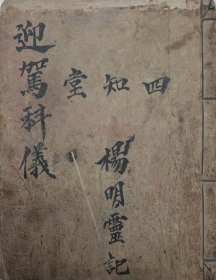 四知堂
楊明靈記
迎駕科儀